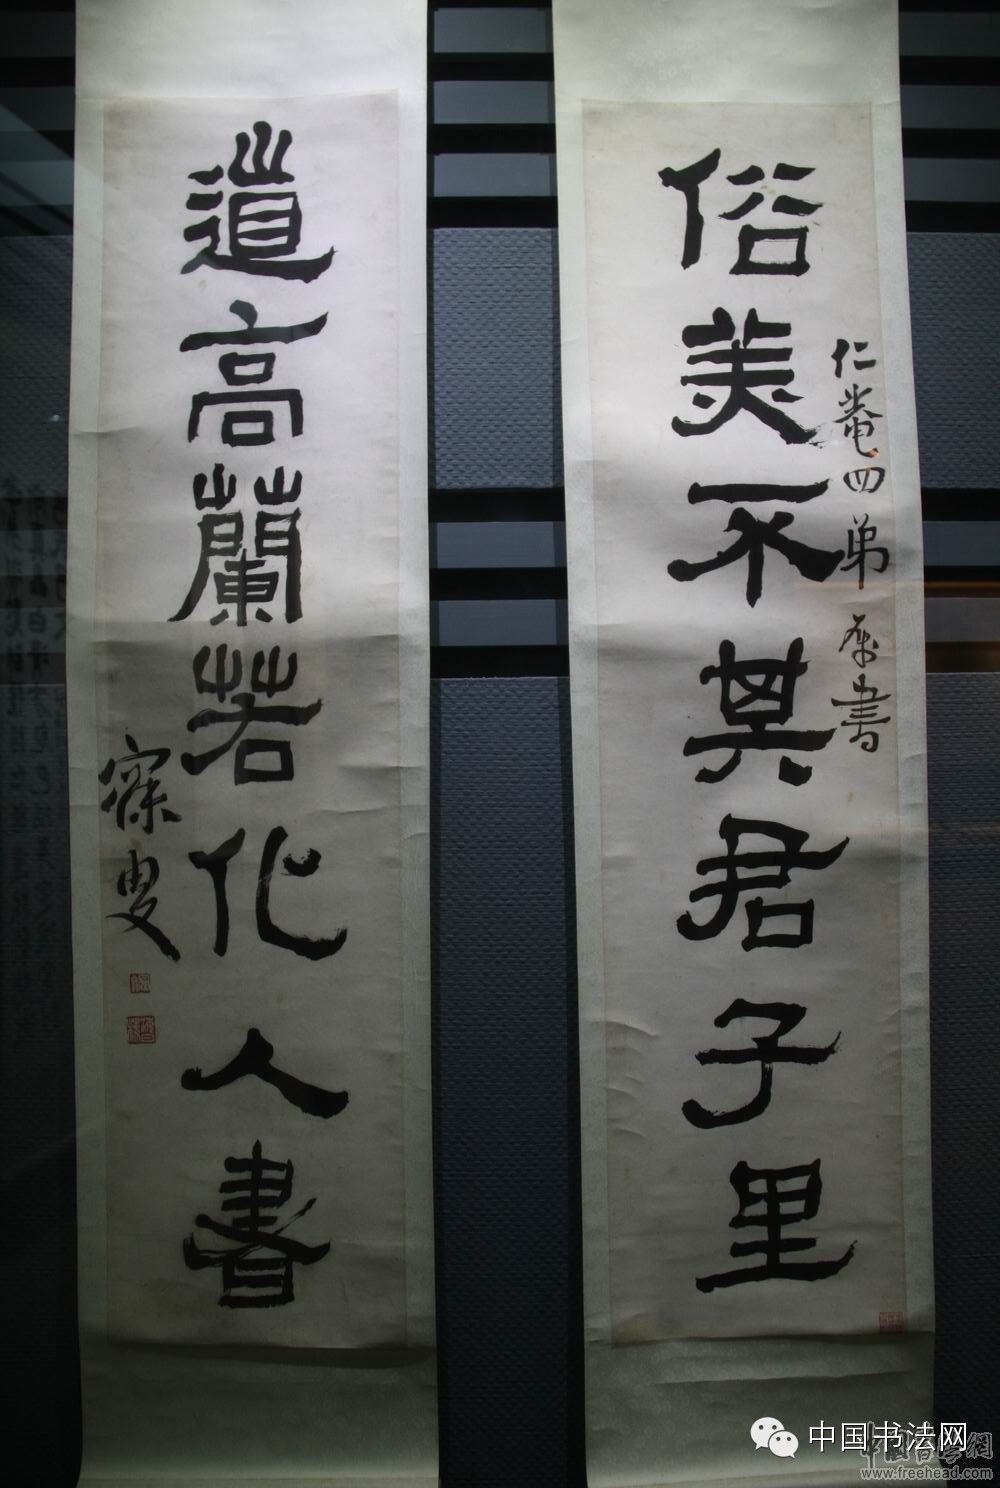 俗美不其君子里
仁菴四弟 属書
道高蘭若化人書
寐叟
中国书法网
www.freehead.com